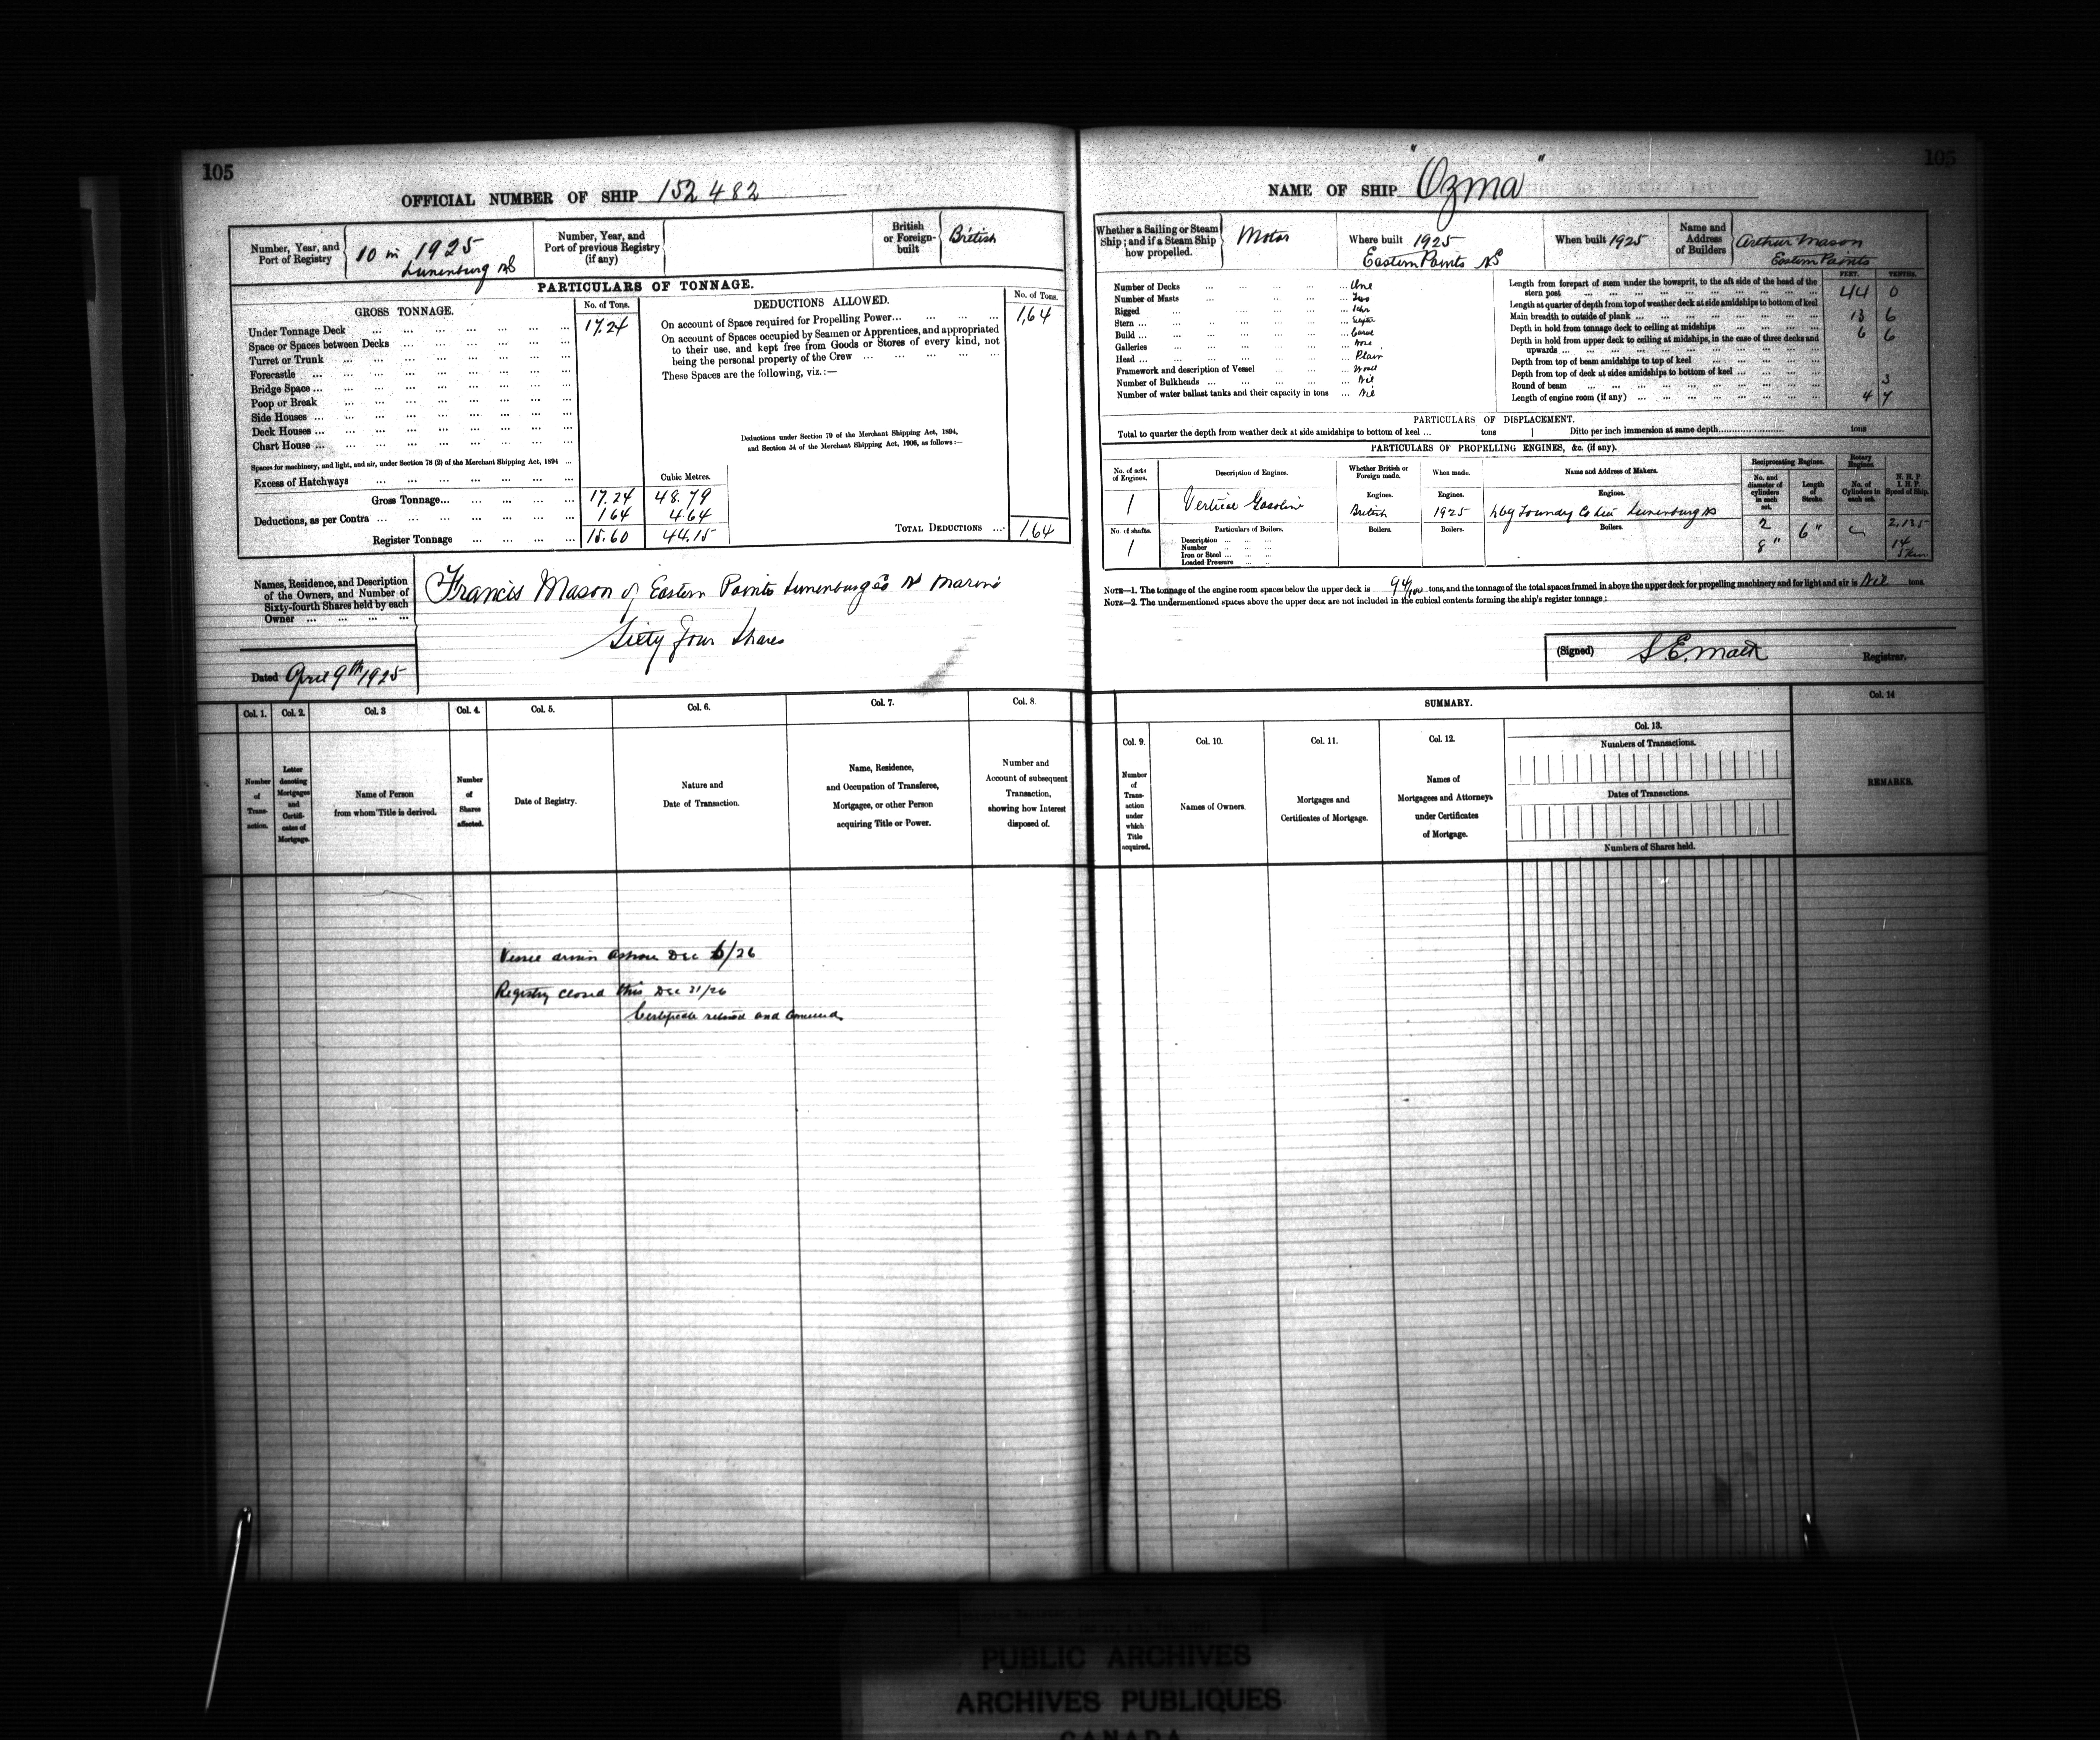 105
OFFICIAL NUMBER OF SHIP 152482
Number, Year, and Port of Registry
10 in 1925
Lunenburg NS
Number, Year, and Port of previous Registry (if any)
British or Foreign-built
British
PARTICULARS OF TONNAGE.
GROSS TONNAGE.
No. of Tons.
DEDUCTIONS ALLOWED.
No. of Tons.
Under Tonnage Deck ... 17.24
Space or Spaces between Decks
Turret or Trunk
Forecastle
Bridge Space ...
Poop or Break
Side Houses ...
Deck Houses ...
Chart House ...
Spaces for machinery, and light, and air, under Section 78 (2) of the Merchant Shipping Act, 1894 ...
Excess of Hatchways
Cubic Metres.
Gross Tonnage... 17.24 48.79
Deductions, as per Contra ... 1.64 4.64
Register Tonnage 15.60 44.15
On account of Space required for Propelling Power... 1.64
On account of Spaces occupied by Seamen or Apprentices, and appropriated
to their use, and kept free from Goods or Stores of every kind, not
being the personal property of the Crew ...
These Spaces are the following, viz.:—
Deductions under Section 79 of the Merchant Shipping Act, 1894,
and Section 54 of the Merchant Shipping Act, 1906, as follows:—
TOTAL DEDUCTIONS ... 1.64
Names, Residence, and Description
of the Owners, and Number of
Sixty-fourth Shares held by each
Owner
Francis Mason of Eastern Points Lunenburg Co NS
Sixty Four Shares
Dated April 9th 1925
Col. 1. Col. 2. Col. 3 Col. 4. Col. 5. Col. 6. Col. 7. Col. 8.
Number of Transaction.
Letter denoting Mortgages and Certificates of Mortgage.
Name of Person from whom Title is derived.
Number of Shares affected.
Date of Registry.
Nature and Date of Transaction.
Name, Residence, and Occupation of Transferee, Mortgagee, or other Person acquiring Title or Power.
Number and Account of subsequent Transaction, showing how Interest disposed of.
ashore Dec 6/26
Registry closed this Dec 31/26
Certificate and
105
NAME OF SHIP "Ozma"
Whether a Sailing or Steam Ship; and if a Steam Ship how propelled.
Motor
Where built 1925
Eastern Points NS
When built 1925
Name and Address of Builders
Arthur Mason
Eastern Points
Number of Decks ... One
Number of Masts ... Two
Rigged ... Schr
Stern ...
Build ... Carvel
Galleries ... None
Head ... Plain
Framework and description of Vessel ... Wood
Number of Bulkheads ... Nil
Number of water ballast tanks and their capacity in tons ... Nil
FEET. TENTHS.
Length from forepart of stem under the bowsprit, to the aft side of the head of the
stern post ... 44 0
Length at quarter of depth from top of weather deck at side amidships to bottom of keel
Main breadth to outside of plank ... 13 6
Depth in hold from tonnage deck to ceiling at midships 6 6
Depth in hold from upper deck to ceiling at midships, in the case of three decks and
upwards ...
Depth from top of beam amidships to top of keel
Depth from top of deck at sides amidships to bottom of keel ...
Round of beam 3
Length of engine room (if any) 4 7
PARTICULARS OF DISPLACEMENT.
Total to quarter the depth from weather deck at side amidships to bottom of keel ... tons | Ditto per inch immersion at same depth... tons
PARTICULARS OF PROPELLING ENGINES, &c. (if any).
No. of sets of Engines.
Description of Engines.
Whether British or Foreign made.
When made.
Name and Address of Makers.
Reciprocating Engines.
Rotary Engines.
No. and diameter of cylinders in each set.
Length of Stroke.
No. of Cylinders in each set.
N. H. P. I. H. P. Speed of Ship.
Engines. Engines. Engines.
1 Vertical Gasoline British 1925 Lbg Foundry Co Ltd Lunenburg NS
No. of shafts. Particulars of Boilers. Boilers. Boilers. Boilers.
2 6"
8"
14
1
Description
Number
Iron or Steel
Loaded Pressure
NOTE—1. The tonnage of the engine room spaces below the upper deck is 94/100 tons, and the tonnage of the total spaces framed in above the upper deck for propelling machinery and for light and air is Nil tons.
NOTE—2. The undermentioned spaces above the upper deck are not included in the cubical contents forming the ship's register tonnage:
(Signed) S.E. Mack Registrar.
SUMMARY.
Col. 9. Col. 10. Col. 11. Col. 12. Col. 13. Col. 14
Number of Transaction under which Title acquired.
Names of Owners.
Mortgages and Certificates of Mortgage.
Names of Mortgagees and Attorneys under Certificates of Mortgage.
Numbers of Transactions.
Dates of Transactions.
Numbers of Shares held.
REMARKS.
PUBLIC ARCHIVES
ARCHIVES PUBLIQUES
CANADA